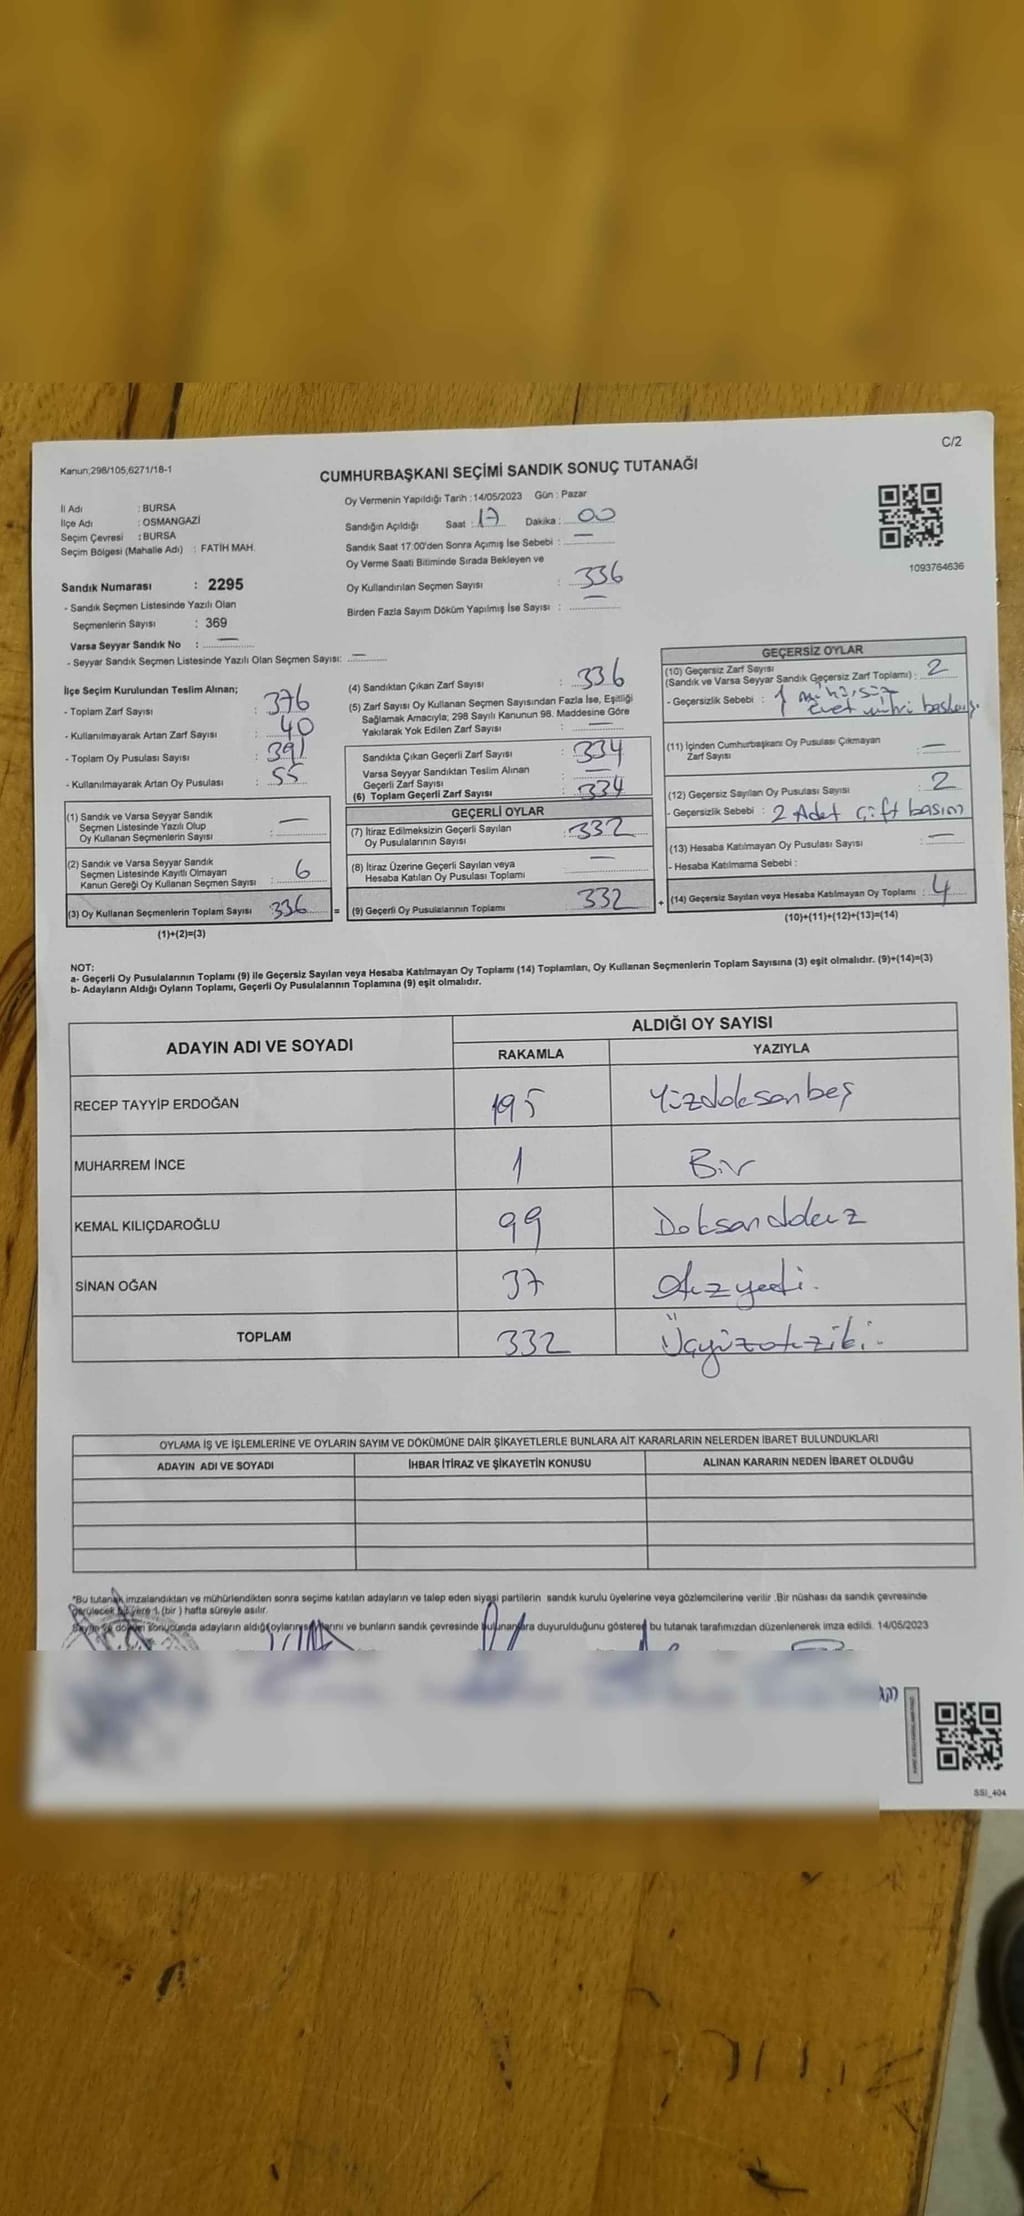 C/2
Kanun;298/105,6271/18-1
CUMHURBAŞKANI SEÇİMİ SANDIK SONUÇ TUTANAĞI
İl Adı : BURSA
İlçe Adı : OSMANGAZİ
Seçim Çevresi : BURSA
Seçim Bölgesi (Mahalle Adı) : FATİH MAH.
Sandık Numarası : 2295
- Sandık Seçmen Listesinde Yazılı Olan
Seçmenlerin Sayısı : 369
Varsa Seyyar Sandık No : —
- Seyyar Sandık Seçmen Listesinde Yazılı Olan Seçmen Sayısı: —
Oy Vermenin Yapıldığı Tarih : 14/05/2023 Gün : Pazar
Sandığın Açıldığı Saat : 17 Dakika : 00
Sandık Saat 17:00'den Sonra Açımış İse Sebebi : —
Oy Verme Saati Bitiminde Sırada Bekleyen ve
Oy Kullandırılan Seçmen Sayısı : 336
Birden Fazla Sayım Döküm Yapılmış İse Sayısı : —
1093764636
İlçe Seçim Kurulundan Teslim Alınan;
- Toplam Zarf Sayısı : 376
- Kullanılmayarak Artan Zarf Sayısı : 40
- Toplam Oy Pusulası Sayısı : 391
- Kullanılmayarak Artan Oy Pusulası : 55
(1) Sandık ve Varsa Seyyar Sandık
Seçmen Listesinde Yazılı Olup
Oy Kullanan Seçmenlerin Sayısı : —
(2) Sandık ve Varsa Seyyar Sandık
Seçmen Listesinde Kayıtlı Olmayan
Kanun Gereği Oy Kullanan Seçmen Sayısı : 6
(3) Oy Kullanan Seçmenlerin Toplam Sayısı : 336 =
(1)+(2)=(3)
(4) Sandıktan Çıkan Zarf Sayısı : 336
(5) Zarf Sayısı Oy Kullanan Seçmen Sayısından Fazla İse, Eşitliği
Sağlamak Amacıyla; 298 Sayılı Kanunun 98. Maddesine Göre
Yakılarak Yok Edilen Zarf Sayısı : —
Sandıkta Çıkan Geçerli Zarf Sayısı : 334
Varsa Seyyar Sandıktan Teslim Alınan
Geçerli Zarf Sayısı : —
(6) Toplam Geçerli Zarf Sayısı : 334
GEÇERLİ OYLAR
(7) İtiraz Edilmeksizin Geçerli Sayılan
Oy Pusulasının Sayısı : 332
(8) İtiraz Üzerine Geçerli Sayılan veya
Hesaba Katılan Oy Pusulası Toplamı : —
(9) Geçerli Oy Pusulalarının Toplamı : 332 +
GEÇERSİZ OYLAR
(10) Geçersiz Zarf Sayısı
(Sandık ve Varsa Seyyar Sandık Geçersiz Zarf Toplamı) : 2
- Geçersizlik Sebebi : 1 mühürsüz
Evet mührü
(11) İçinden Cumhurbaşkanı Oy Pusulası Çıkmayan
Zarf Sayısı : —
(12) Geçersiz Sayılan Oy Pusulası Sayısı : 2
- Geçersizlik Sebebi : 2 Adet çift basım
(13) Hesaba Katılmayan Oy Pusulası Sayısı : —
- Hesaba Katılmama Sebebi :
(14) Geçersiz Sayılan veya Hesaba Katılmayan Oy Toplamı : 4
(10)+(11)+(12)+(13)=(14)
NOT:
a- Geçerli Oy Pusulalarının Toplamı (9) ile Geçersiz Sayılan veya Hesaba Katılmayan Oy Toplamı (14) Toplamları, Oy Kullanan Seçmenlerin Toplam Sayısına (3) eşit olmalıdır. (9)+(14)=(3)
b- Adayların Aldığı Oyların Toplamı, Geçerli Oy Pusulalarının Toplamına (9) eşit olmalıdır.
ADAYIN ADI VE SOYADI ALDIĞI OY SAYISI
RAKAMLA YAZIYLA
RECEP TAYYİP ERDOĞAN 195 Yüzdoksanbeş
MUHARREM İNCE 1 Bir
KEMAL KILIÇDAROĞLU 99 Doksandokuz
SİNAN OĞAN 37 Otuzyedi.
TOPLAM 332 Üçyüzotuziki.
OYLAMA İŞ VE İŞLEMLERİNE VE OYLARIN SAYIM VE DÖKÜMÜNE DAİR ŞİKAYETLERLE BUNLARA AİT KARARLARIN NELERDEN İBARET BULUNDUKLARI
ADAYIN ADI VE SOYADI İHBAR İTİRAZ VE ŞİKAYETİN KONUSU ALINAN KARARIN NEDEN İBARET OLDUĞU
*Bu tutanak imzalandıktan ve mühürlendikten sonra seçime katılan adayların ve talep eden siyasi partilerin sandık kurulu üyelerine veya gözlemcilerine verilir .Bir nüshası da sandık çevresinde
görülecek bir yere 1 (bir ) hafta süreyle asılır.
Sayım ve döküm sonucunda adayların aldığı oyların ve bunların sandık çevresinde bulunanlara duyurulduğunu gösteren bu tutanak tarafımızdan düzenlenerek imza edildi. 14/05/2023
SSI_404